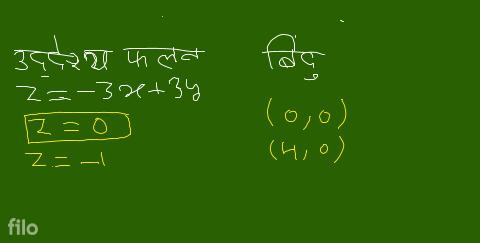 उद्देश्य फलन बिंदु
z = -3x+3y
z = 0 (0,0)
z = -1 (4,0)
filo